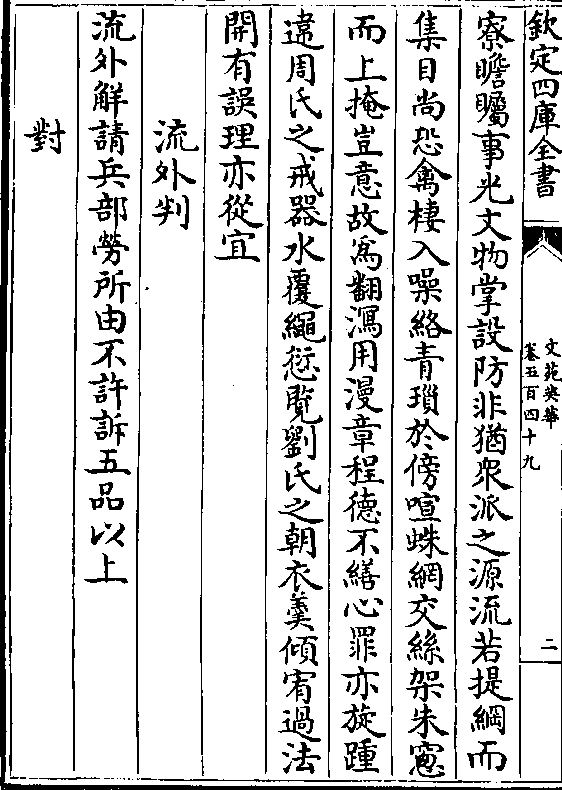 欽定四庫全書
文苑英華
卷五百四十九
二
寮瞻矚事光文物掌設防非猶眾派之源流若提綱而
集目尚恐禽棲入噪絡青瑣於傍喧蛛網交絲架朱窻
而上掩豈意故寫翻瀉用漫章程德不繕心罪亦旋踵
違周氏之戒器水覆繩愆覽劉氏之朝衣羮傾宥過法
開有誤理亦從宜
流外判
流外解請兵部勞所由不許訴五品以上
對